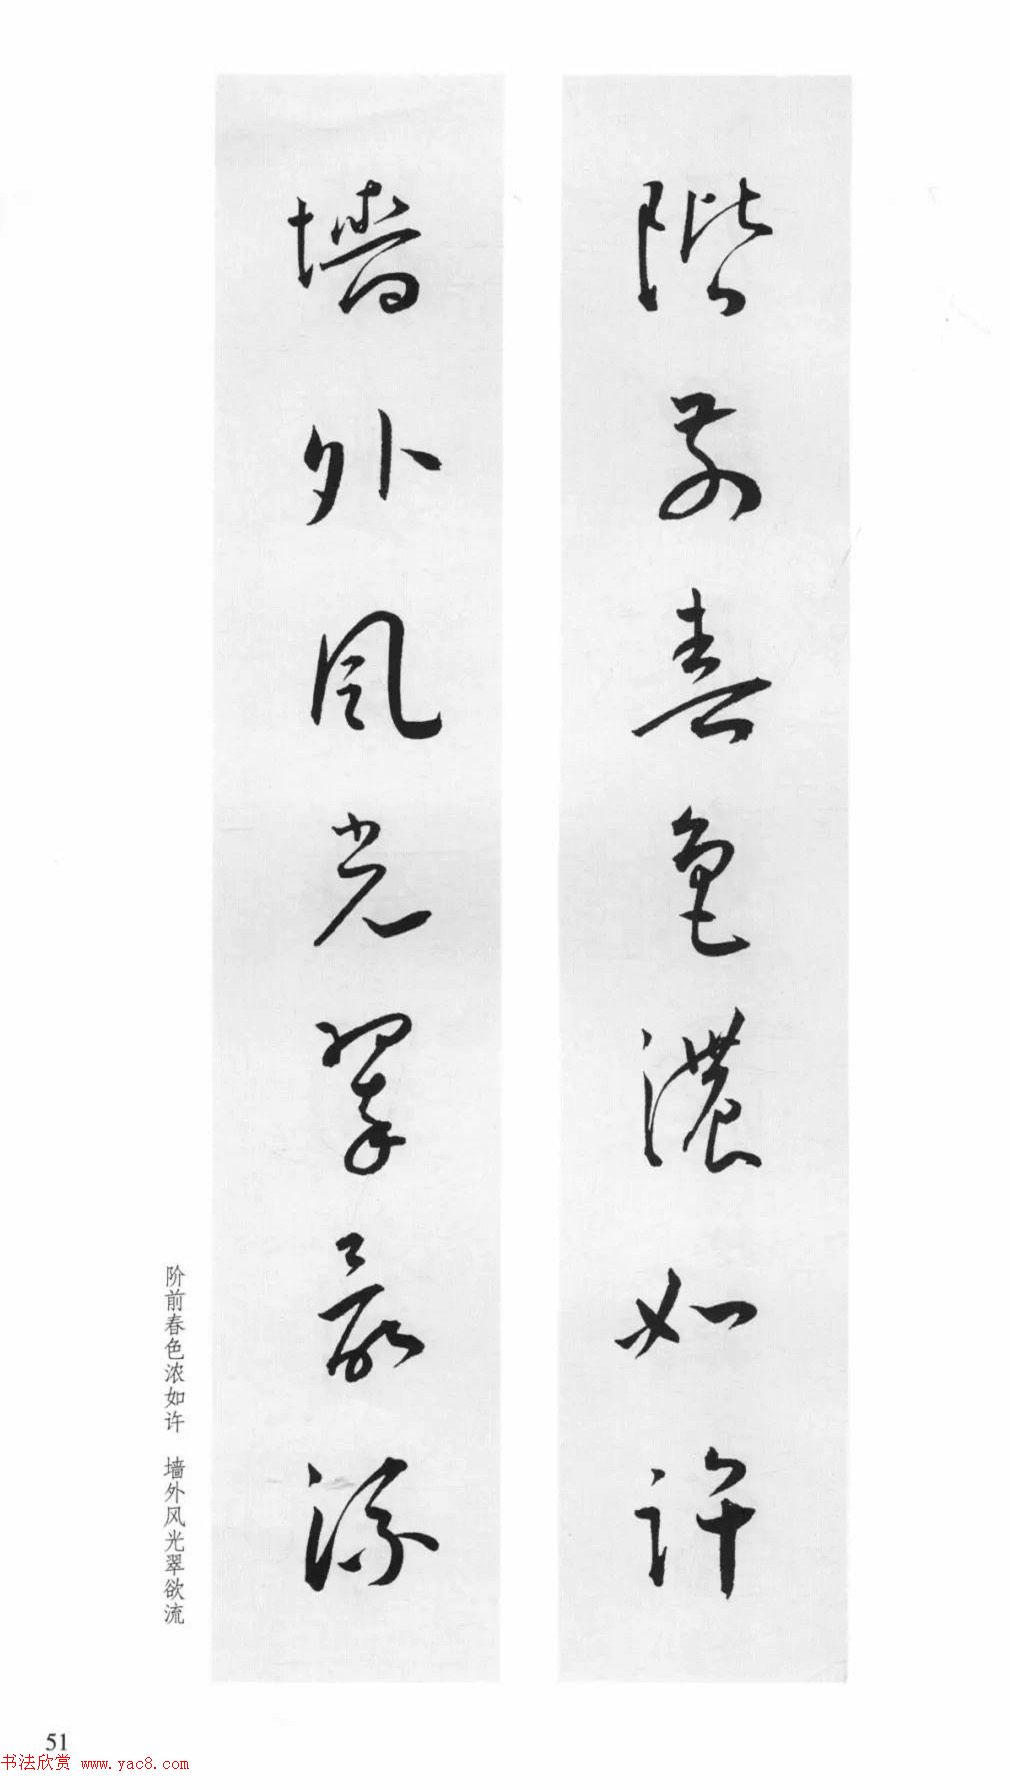 階前春色濃如許
墻外風光翠欲流
阶前春色浓如许 墙外风光翠欲流
51
书法欣赏 www.yac8.com